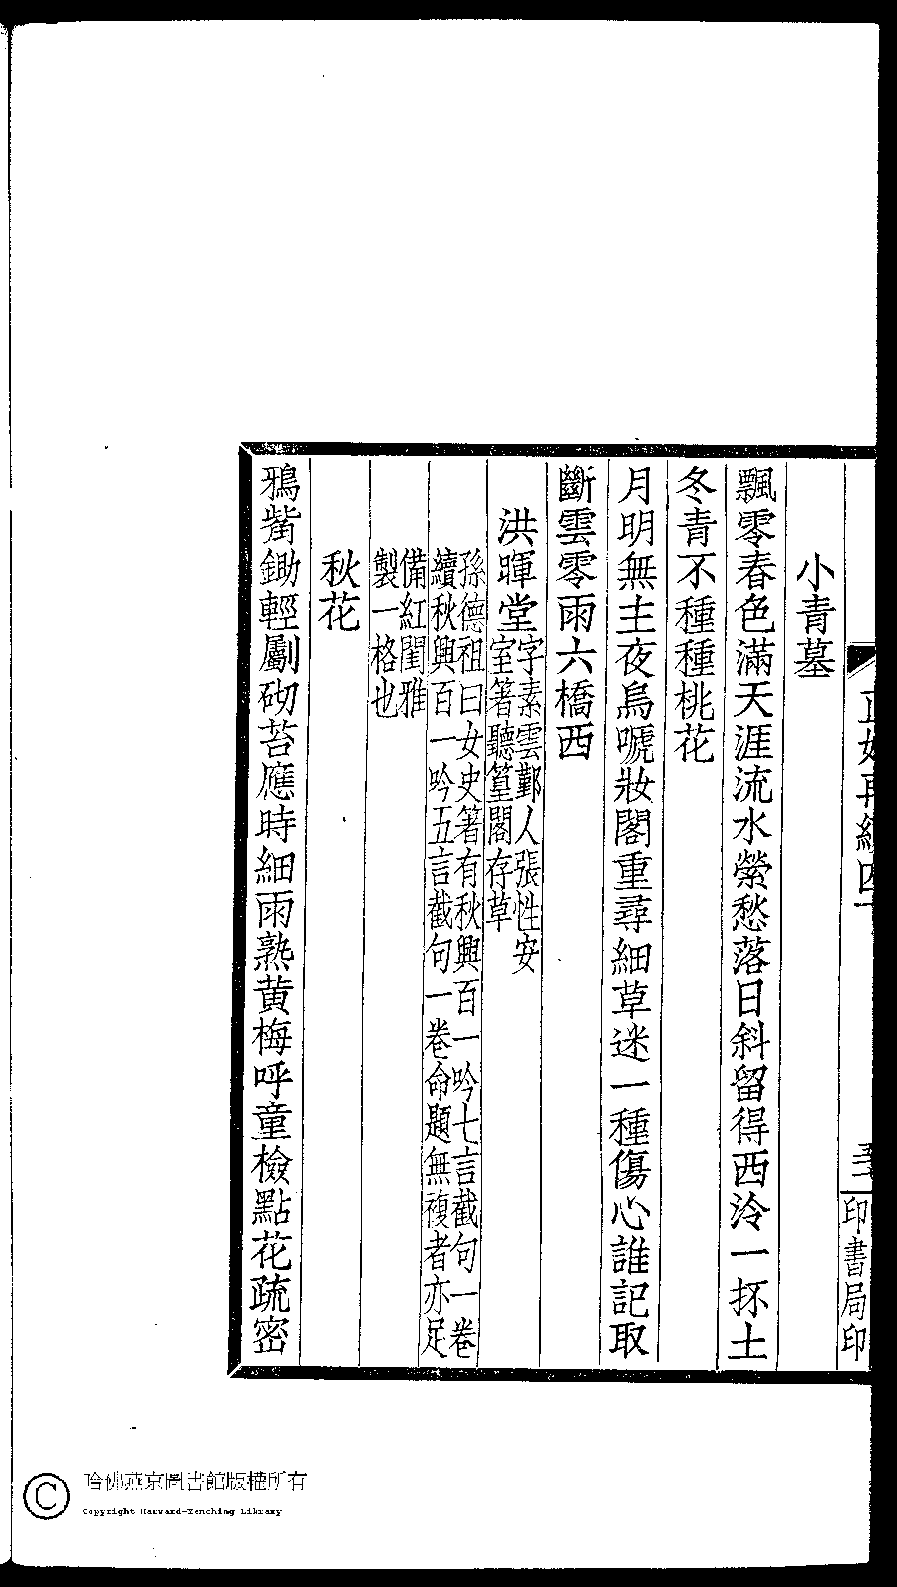 小青墓
飄零春色滿天涯流水縈愁落日斜留得西泠一抔土
冬青不種種桃花
月明無主夜烏嗁妝閣重尋細草迷一種傷心誰記取
斷雲零雨六橋西
洪暉堂字素雲鄞人張性安
室箸聽篁閣存草
孫德祖曰女史箸有秋興百一吟七言截句一卷
續秋興百一吟五言截句一卷命題無複者亦足
備紅閨雅
製一格也
秋花
鴉觜鋤輕劚砌苔應時細雨熟黃梅呼童檢點花疏密
再續四
印書局印
哈佛燕京圖書館版權所有
Copyright Harvard-Yenching Library